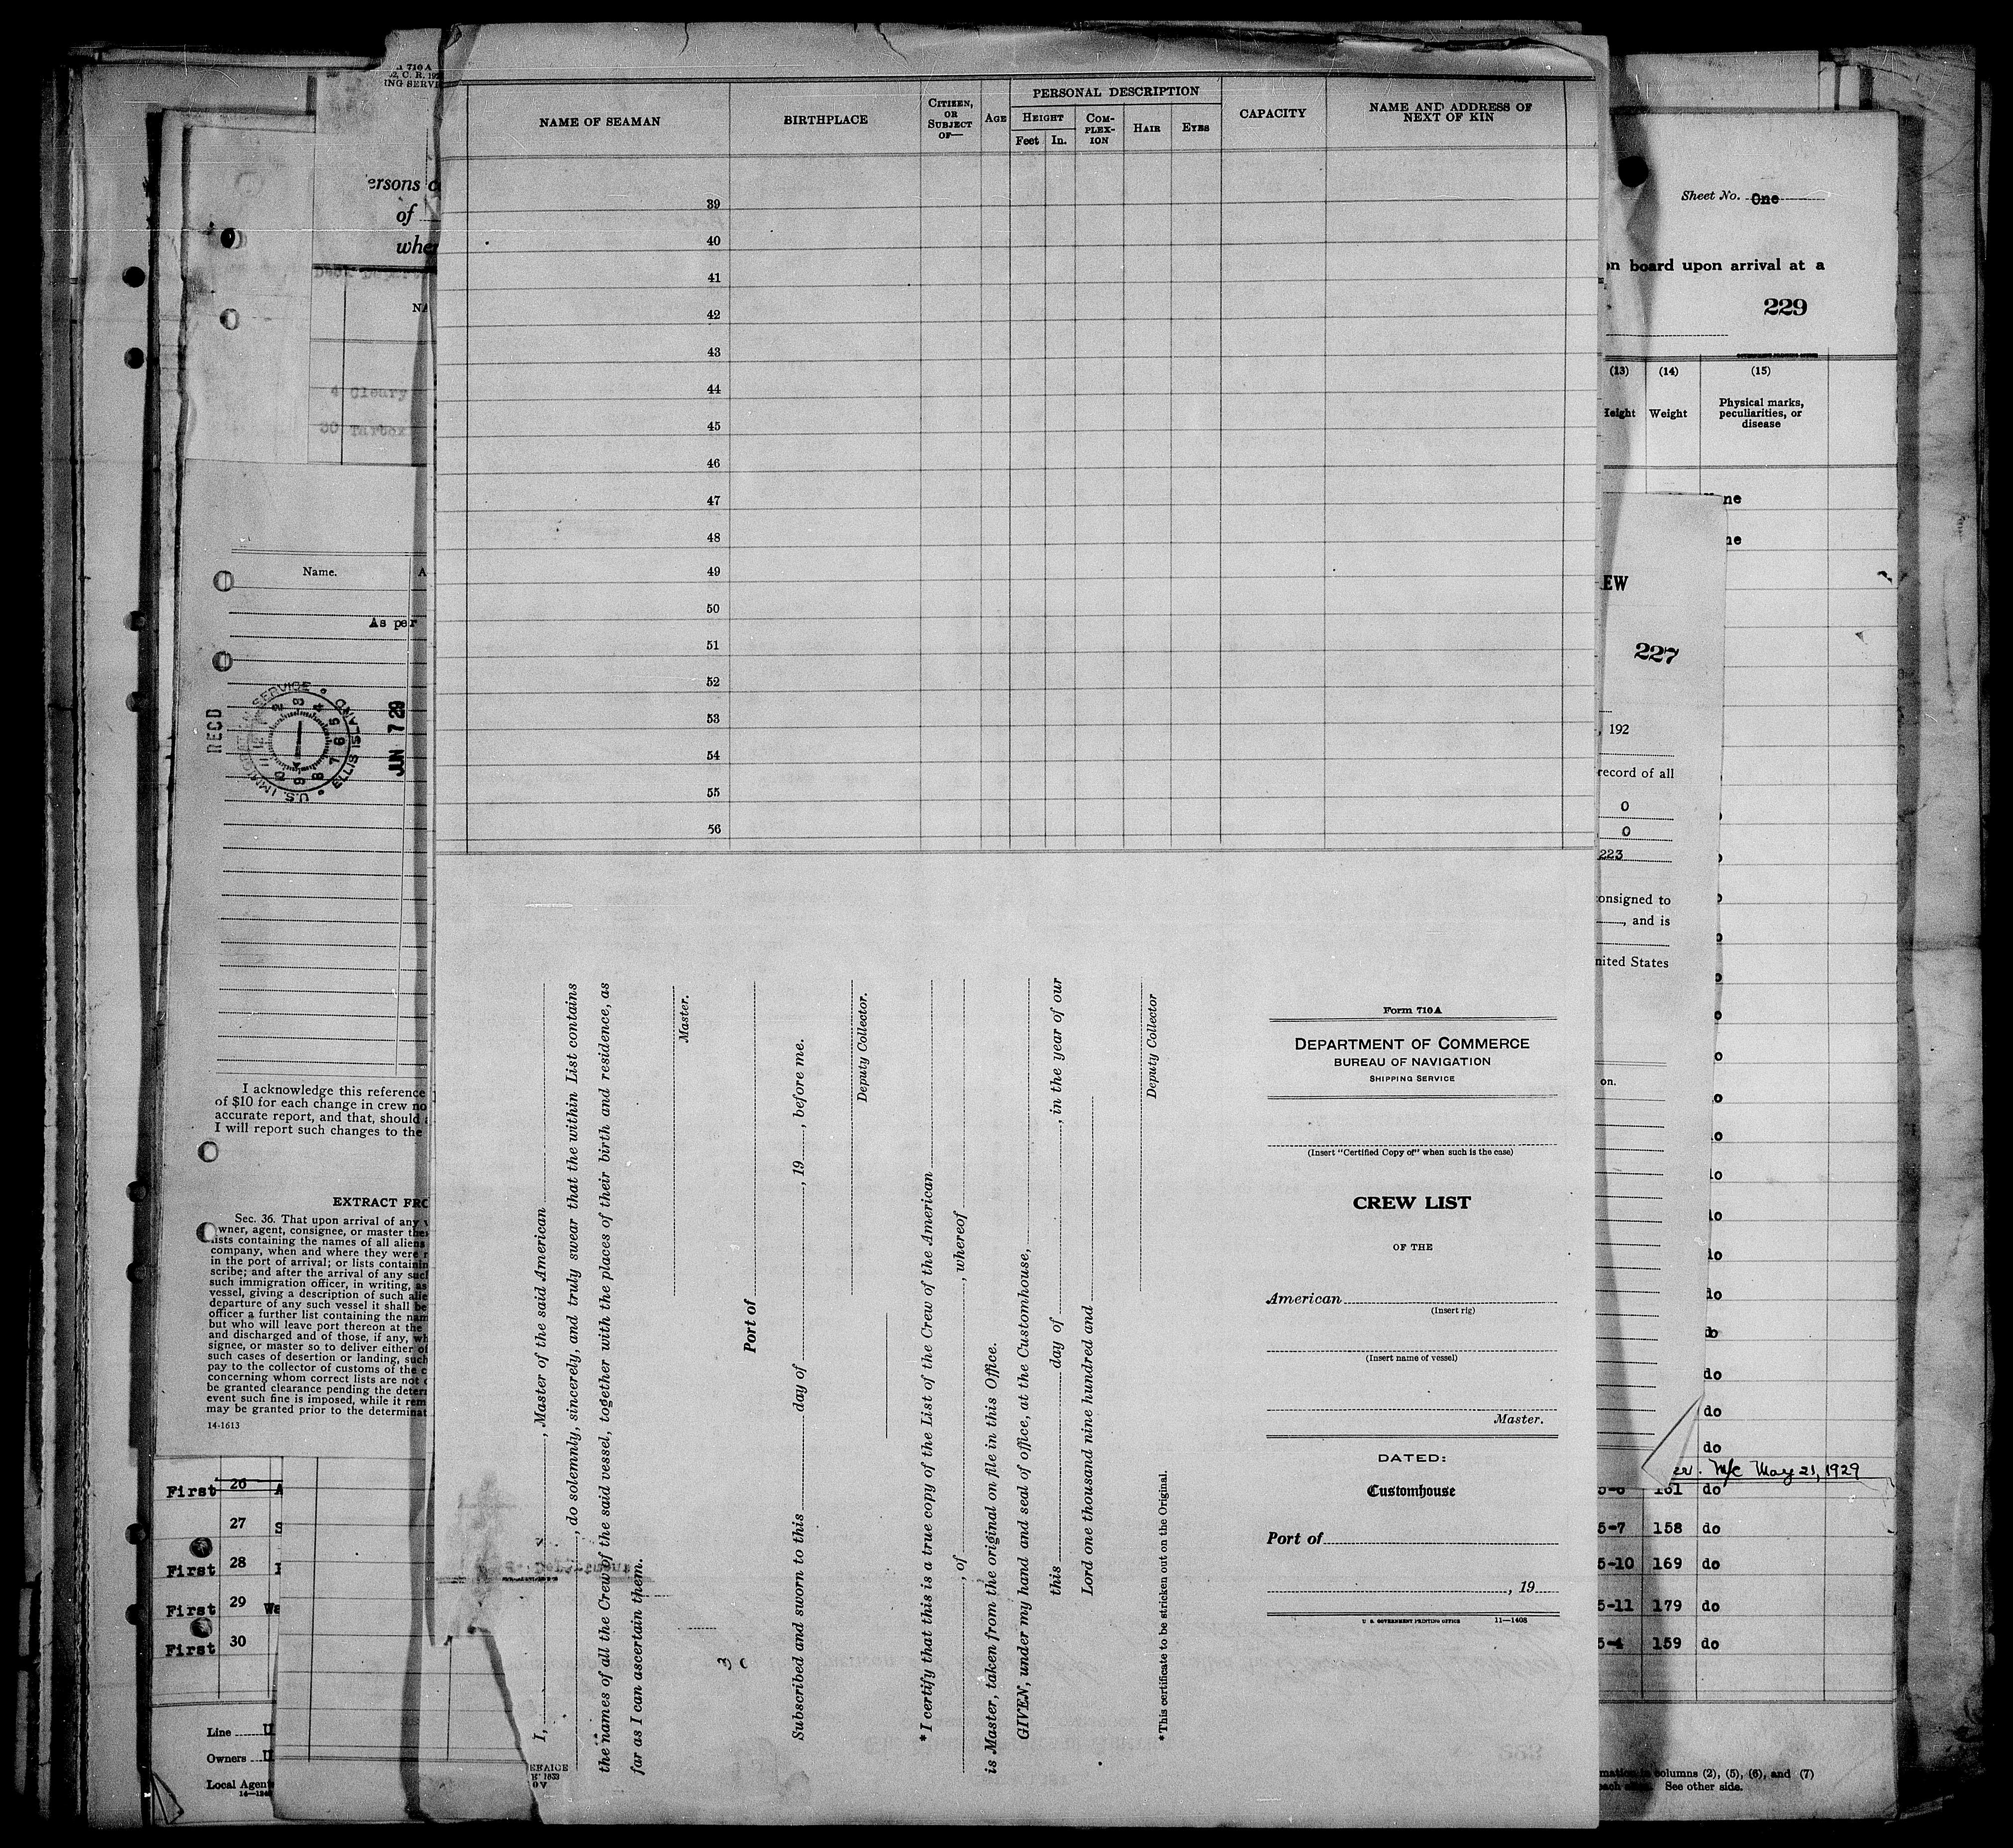 710 A
C. R. 192
ING SERV
ersons c
of
whe
NA
4 Cleary
30
Name. A
As per
RECD
U.S. IMMIGRATION SERVICE • ELLIS ISLAND •
1 2 3 4 5 6 7 8 9 10 11 12
JUN 7 29
I acknowledge this reference
of $10 for each change in crew no
accurate report, and that, should
I will report such changes to the
EXTRACT FRO
Sec. 36. That upon arrival of any v
owner, agent, consignee, or master the
lists containing the names of all aliens
company, when and where they were
in the port of arrival; or lists containin
scribe; and after the arrival of any such
such immigration officer, in writing, as
vessel, giving a description of such alie
departure of any such vessel it shall be
officer a further list containing the nam
but who will leave port thereon at the
and discharged and of those, if any, wh
signee, or master so to deliver either of
such cases of desertion or landing, such
pay to the collector of customs of the c
concerning whom correct lists are not
be granted clearance pending the deter
event such fine is imposed, while it rem
may be granted prior to the determinat
14-1613
First 26 A
27 S
First 28
First 29 Wa
First 30
Line U
Owners U
Local Agent
NAME OF SEAMAN
BIRTHPLACE
CITIZEN, OR SUBJECT OF—
AGE
PERSONAL DESCRIPTION
HEIGHT
Feet In.
COM-PLEX-ION
HAIR
EYES
CAPACITY
NAME AND ADDRESS OF
NEXT OF KIN
39
40
41
42
43
44
45
46
47
48
49
50
51
52
53
54
55
56
I, , Master of the said American
, do solemnly, sincerely, and truly swear that the within List contains
the names of all the Crew of the said vessel, together with the places of their birth and residence, as
far as I can ascertain them.
Master.
Port of
Subscribed and sworn to this day of , 19 , before me.
Deputy Collector.
*I certify that this is a true copy of the List of the Crew of the American
, of , whereof
is Master, taken from the original on file in this Office.
GIVEN, under my hand and seal of office, at the Customhouse,
this day of , in the year of our
Lord one thousand nine hundred and
Deputy Collector
*This certificate to be stricken out on the Original.
Form 710 A
DEPARTMENT OF COMMERCE
BUREAU OF NAVIGATION
SHIPPING SERVICE
(Insert "Certified Copy of" when such is the case)
CREW LIST
OF THE
American
(Insert rig)
(Insert name of vessel)
Master.
DATED:
Customhouse
Port of
, 19
U. S. GOVERNMENT PRINTING OFFICE 11—1408
Sheet No. One
on board upon arrival at a
229
GOVERNMENT PRINTING OFFICE
(13) (14) (15)
Height Weight Physical marks,
peculiarities, or
disease
ne
ne
EW
227
, 192
record of all
0
0
223
consigned to
, and is
nited States
on.
do
do
do
do
er. M/c May 21, 1929
161 do
5-7 158 do
5-10 169 do
5-11 179 do
5-4 159 do
mation in columns (2), (5), (6), and (7)
each alien. See other side.